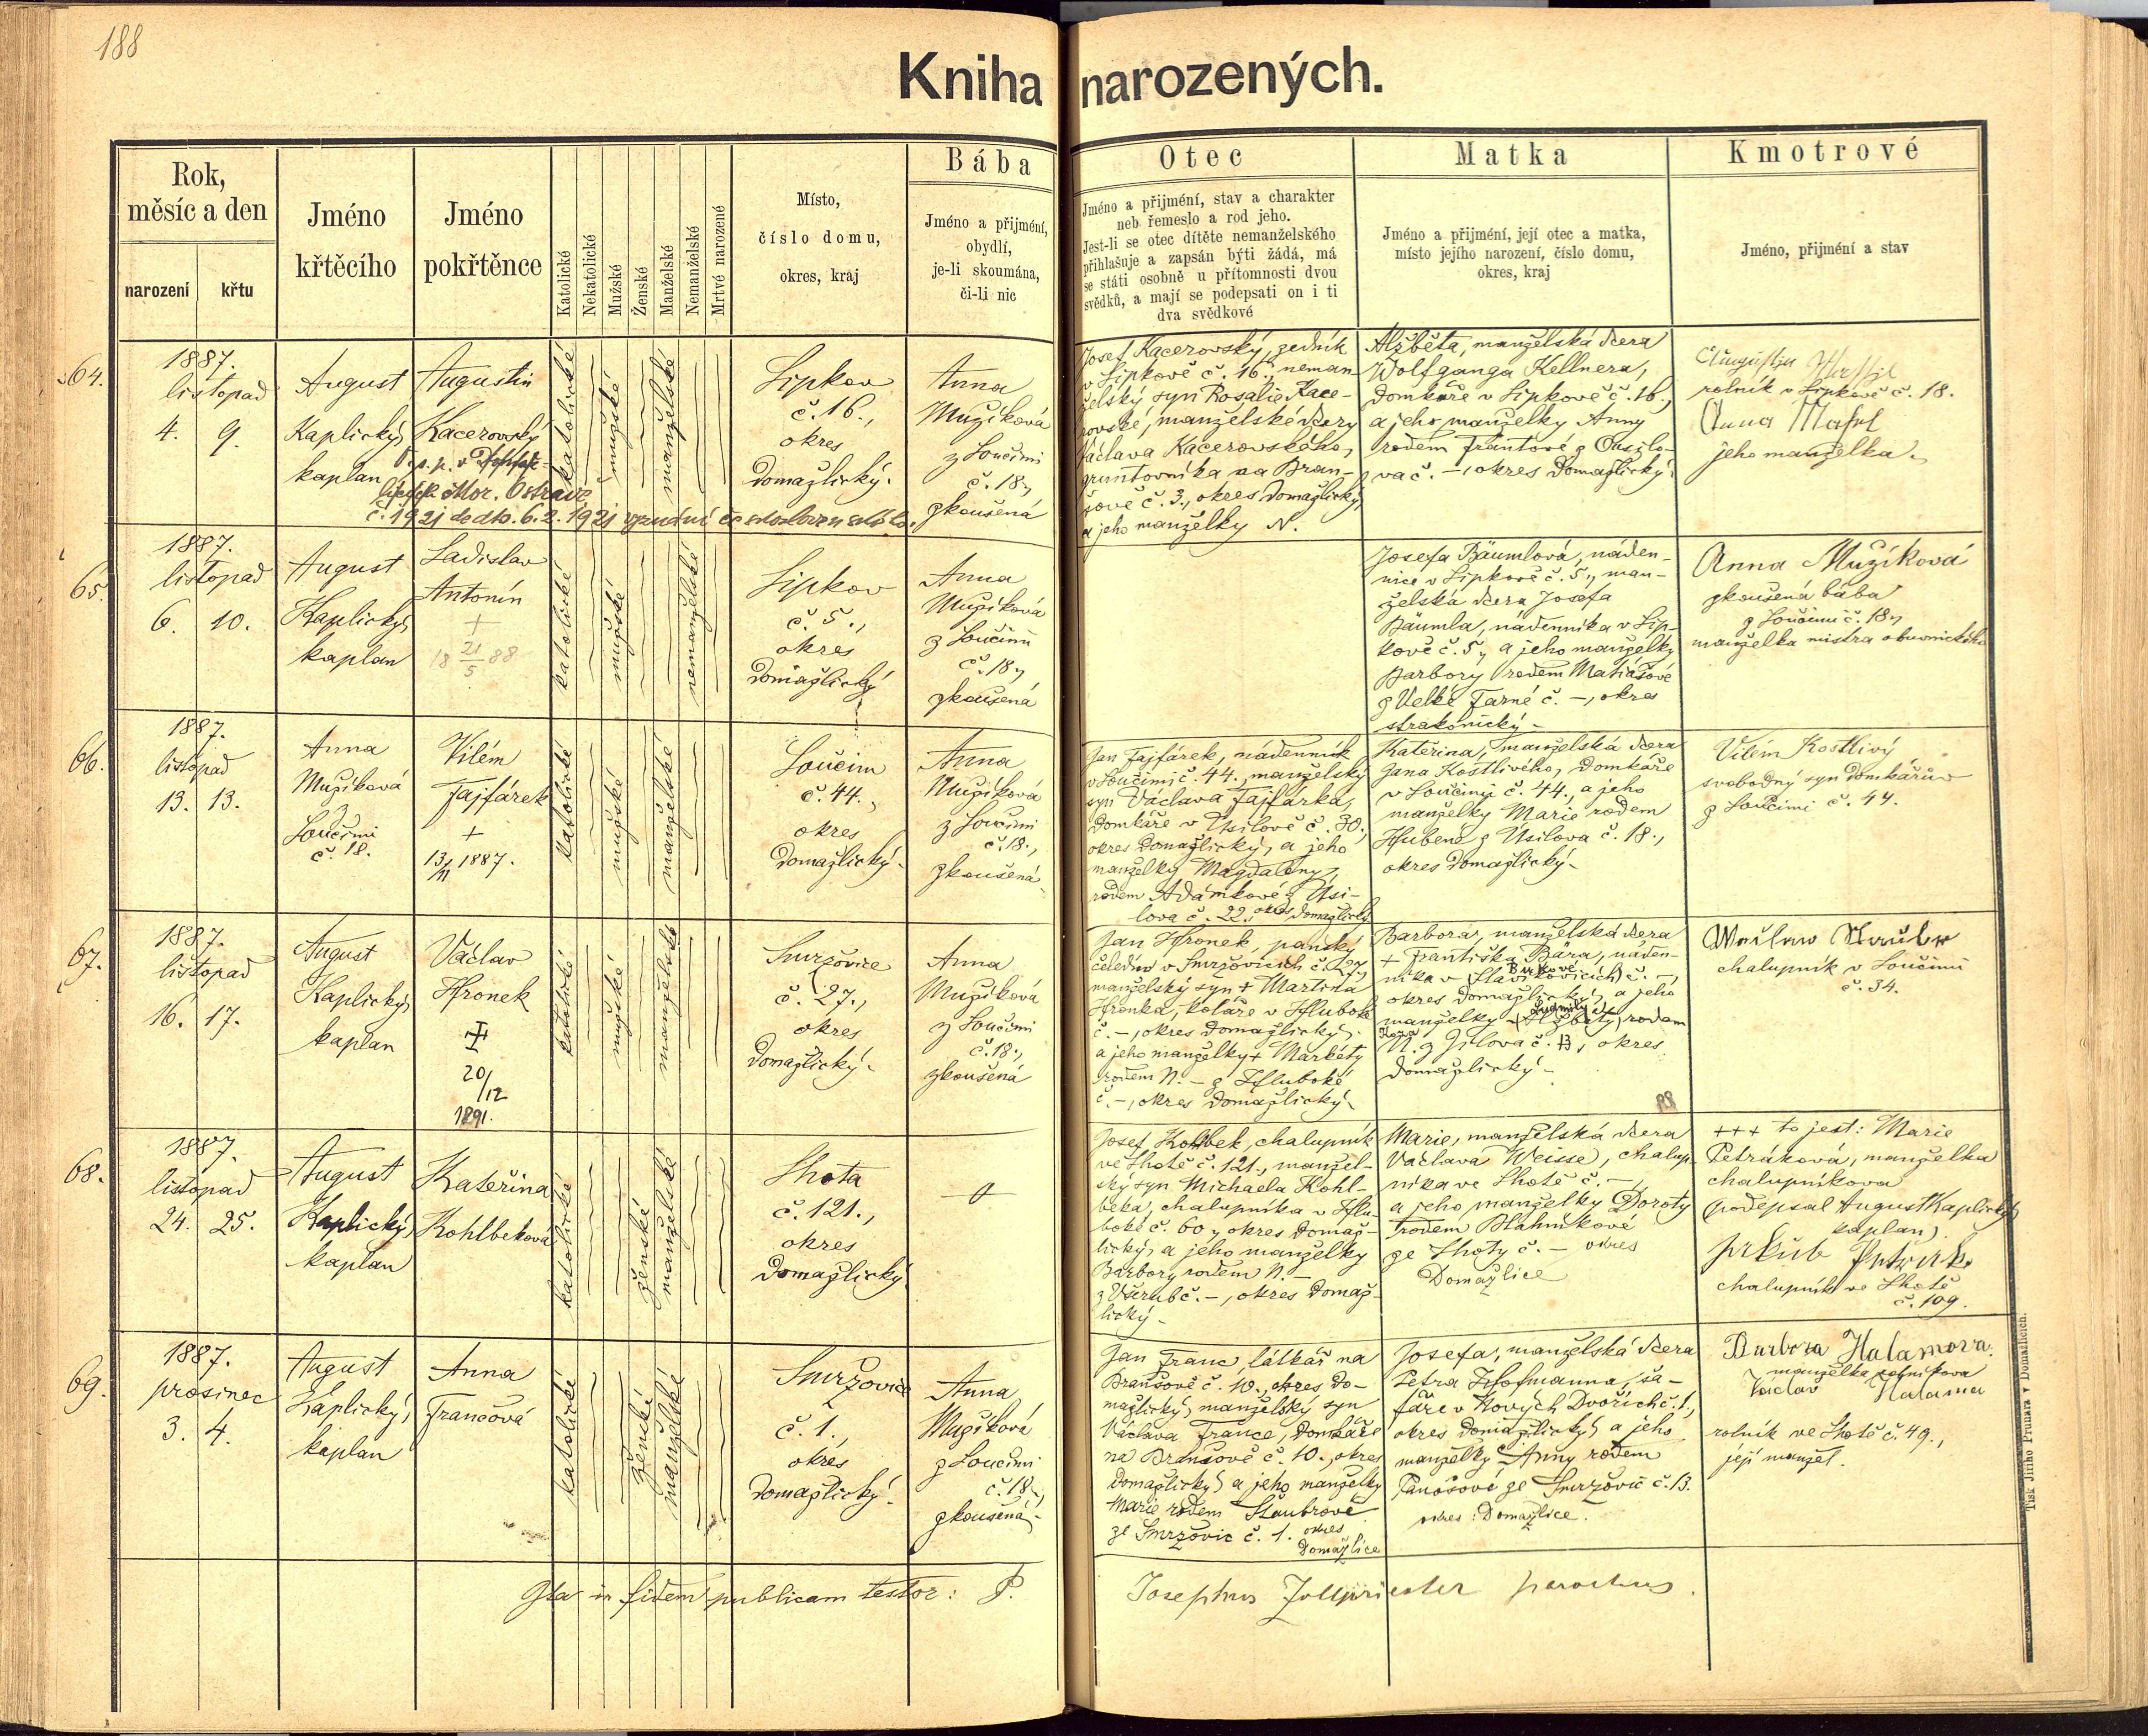 188
Kniha narozených.
Rok,
měsíc a den
narození
křtu
Jméno
křtěcího
Jméno
pokřtěnce
Katolické
Nekatolické
Mužské
Ženské
Manželské
Nemanželské
Mrtvě narozené
Místo,
číslo domu,
okres, kraj
Bába
Jméno a přijmení,
obydlí,
je-li skoumána,
či-li nic
Otec
Jméno a přijmení, stav a charakter
neb řemeslo a rod jeho.
Jest-li se otec dítěte nemanželského
přihlašuje a zapsán býti žádá, má
se státi osobně u přítomnosti dvou
svědků, a mají se podepsati on i ti
dva svědkové
Matka
Jméno a přijmení, její otec a matka,
místo jejího narození, číslo domu,
okres, kraj
Kmotrové
Jméno, přijmení a stav
64.
1887.
listopad
4. 9.
August
Kaplický,
kaplan
Augustin
Kacerovský
Mor. Ostravě
č. 1921 ddto. 6. 2. 1921
katolické
mužské
manželské
Lipkov
č. 16.,
okres
domažlický.
Anna
Mužíková
z Loučimi
č. 18.,
zkoušená
Josef Kacerovský, zedník
v Lipkově č. 16., neman-
želský syn Rosalie Kace-
rovské, manželské dcery
Václava Kacerovského,
gruntovníka na Bran-
šově č. 3., okres domažlický,
a jeho manželky N.
Alžběta, manželská dcera
Wolfganga Kellnera,
domkáře v Lipkově č. 16.,
a jeho manželky Anny
rodem Frantové z Ousilo-
va č. –, okres Domažlický.
rolník v Lipkově č. 18.
Anna
jeho manželka.
65.
1887.
listopad
6. 10.
August
Kaplický,
kaplan
Ladislav
Antonín
+
18 21/5 88
katolické
mužské
nemanželské
Lipkov
č. 5.,
okres
domažlický
Anna
Mužíková
z Loučimi
č. 18.,
zkoušená
Josefa Bäumlová, náden-
nice v Lipkově č. 5., man-
želská dcera Josefa
Bäumla, nádenníka v Lip-
kově č. 5., a jeho manželky
Barbory rodem Matiášové
z Velké Turné č. –, okres
strakonický.
Anna Mužíková
zkoušená bába
z Loučimi č. 18.,
manželka mistra obuvnického
66.
1887.
listopad
13. 13.
Anna
Mužíková
z
Loučimi
č. 18.
Vilém
Fajfárek
+
13/11 1887.
katolické
mužské
manželské
Loučim
č. 44.,
okres
domažlický.
Anna
Mužíková
z Loučimi
č. 18.,
zkoušená
Jan Fajfárek, nádenník
v Loučimi č. 44., manželský
syn Václava Fajfárka,
domkáře v Úsilově č. 30.,
okres domažlický, a jeho
manželky Magdaleny,
rodem Adámkové z Úsi-
lova č. 22., okres domažlický
Kateřina, manželská dcera
Jana Kostlivého, domkáře
v Loučimi č. 44., a jeho
manželky Marie rodem
Hubené z Úsilova č. 18.,
okres domažlický.
Vilém Kostlivý
svobodný syn domkářův
z Loučimi č. 44.
67.
1887.
listopad
16. 17.
August
Kaplický,
kaplan
Václav
Hronek
20/12
1891.
katolické
mužské
manželské
Smržovice
č. 27.,
okres
domažlický.
Anna
Mužíková
z Loučimi
č. 18.,
zkoušená
Jan Hronek, panský
čeledín v Smržovicích č. 27.,
manželský syn + Martina
Hronka, koláře v Hluboké
č. –, okres domažlický,
a jeho manželky + Markéty
rodem N. – z Hluboké
č. –, okres domažlický.
Barbora, manželská dcera
+ Františka Bára, náden-
níka v č. –,
okres domažlický, a jeho
manželky Ludmily rodem
N. z Jilova č. 13., okres
domažlický.
chalupník v Loučimi
č. 34.
68.
1887.
listopad
24. 25.
August
Kaplický,
kaplan
Kateřina
Kohlbeková
katolické
ženské
manželské
Lhota
č. 121.,
okres
Domažlický
Josef Kohlbek, chalupník
ve Lhotě č. 121., manžel-
ský syn Michaela Kohl-
beka, chalupníka v Hlu-
boké č. 60., okres domaž-
lický, a jeho manželky
Barbory rodem N. –
z Všerub č. –, okres domaž-
lický.
Marie, manželská dcera
Václava Weisse, chalup-
níka ve Lhotě č. –,
a jeho manželky Doroty
rodem Bláhníkové
ze Lhoty č. – okres
Domažlice
+++ to jest: Marie
Petráková, manželka
chalupníkova
(podepsal August Kaplický,
kaplan).
Jakub Petrak
chalupník ve Lhotě
č. 109.
69.
1887.
prosinec
3. 4.
August
Kaplický,
kaplan
Anna
Francová
katolické
ženské
manželské
Smržovice
č. 1.,
okres
domažlický.
Anna
Mužíková
z Loučimi
č. 18.,
zkoušená
Jan Franc, látkář na
Branšově č. 10., okres do-
mažlický, manželský syn
Václava France, domkáře
na Branšově č. 10., okres
domažlický, a jeho manželky
Marie rodem Štaubrové
ze Smržovic č. 1. okres
Domažlice
Josefa, manželská dcera
Petra Hofmanna, ša-
fáře v Nových Dvořích č. 1.,
okres domažlický, a jeho
manželky Anny rodem
Tanošové ze Smržovic č. 13.
okres: Domažlice.
Barbora Halamova.
manželka rolníkova
Václav Halama
rolník ve Lhotě č. 49.,
její manžel.
Ita in fidem publicam testor: P. Josephus Zollpriester parochus.
Tisk Jiřího Prunara v Domažlicích.